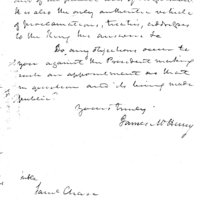 It is also the only authentic vehicle
of proclamations, treaties, addresses
to the King his answers &c
Do any objections occur to
you against the President making
such an appointment as that
in question and its being made
public?
Yours truly
James McHenry
Chase